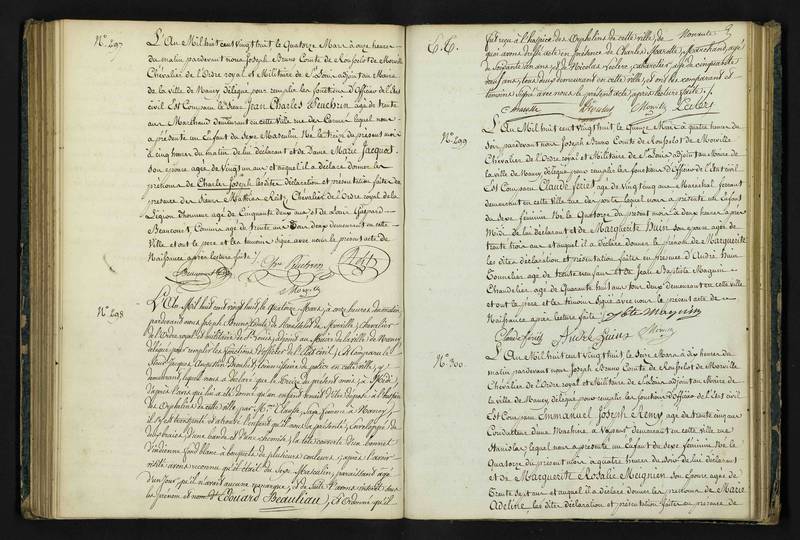 N.° 297
L'An Mil huit cent vingt huit le Quatorze Mars à onze heures
du matin pardevant nous Joseph Bruno Comte de Rousselot de Morville
Chevalier de l'Ordre royal et Militaire de St Louis adjoint au Maire
de la Ville de Nancy délégué pour remplir les fonctions d'Officier de l'Etat
civil Est Comparu le Sieur Jean Charles agé de trente
ans Marchand demeurant en cette Ville rue lequel nous
a présenté un Enfant du Sexe Masculin Né le treize du présent mois
à cinq heures du matin de lui déclarant et de Dame Marie Jacquot
son épouse agée de Vingt un ans et auquel il a déclaré donner les
prénoms de Charles Joseph les dites déclaration et présentation faites en
présence de Sieurs Mathieu Chevalier de l'Ordre royal de la
Légion d'honneur agé de Cinquante deux ans et de Louis Gaspard
Beaucourt Commis agé de trente ans tous deux demeurant en cette
Ville et ont le père et les témoins signé avec nous le présent acte de
Naissance après lecture faite
N.° 298
L'An Mil huit cent vingt huit, le quatorze Mars, à onze heures du matin,
pardevant nous Joseph Bruno Comte de Rousselot de Morville, Chevalier
de l'Ordre royal et militaire de St Louis, adjoint au Maire de la ville de Nancy
délégué pour remplir les fonctions d'officier de l'Etat civil, Est Comparu le
Sieur Jacques Augustin commissaire de police en cette ville, y
demeurant, lequel nous a déclaré que le treize du présent mois, à
qu'un enfant venait d'être déposé à l'hospice
des Orphelins de cette ville par Mme Sage femme à Nancy,
il s'est transporté et a trouvé l'enfant qu'il nous a présenté, enveloppé de
d'une bande et d'une chemise, la tête couverte d'un bonnet
d'indienne fond blanc à bouquets de plusieurs couleurs; après l'avoir
visité avons reconnu qu'il était du sexe Masculin, paraissant agé
d'un jour, qu'il n'avait aucune remarque, et de suite l'avons inscrit sous
les prénom et nom d'Edouard Beaulieu, et Ordonné qu'il
fut reçu à l'hospice des Orphelins de cette ville, de
quoi avons dressé acte en présence de Charles Marotte, Marchand, agé
de Soixante ans, et de Nicolas Leclerc, cabaretier, agé de cinquante
ans, tous deux demeurant en cette ville, et ont les comparant et
témoins Signé avec nous le présent acte, après lecture faite.
Leclerc
N.° 299
L'An Mil huit cent vingt huit le Quinze Mars à quatre heures du
soir pardevant nous Joseph Bruno Comte de Rousselot de Morville
Chevalier de l'Ordre royal et Militaire de St Louis adjoint au Maire de
la ville de Nancy délégué pour remplir les fonctions d'Officier de l'Etat civil
Est Comparu Claude agé de Vingt cinq ans Maréchal ferrant
demeurant en cette Ville rue lequel nous a présenté un Enfant
du Sexe féminin Né le Quatorze du présent mois à deux heures après
Midi de lui déclarant et de Marguerite Huin son épouse agée de
trente trois ans et auquel il a déclaré donner le prénom de Marguerite
les dites déclaration et présentation faites en présence d'André Huin
Tonnelier agé de trente neuf ans et de Jean Baptiste Maguin
Chandelier agé de Quarante huit ans tous deux demeurant en cette ville
et ont le père et les témoins signé avec nous le présent acte de
Naissance après lecture faite
Maguin
N.° 300
L'An Mil huit cent vingt huit le Seize Mars à dix heures du
matin pardevant nous Joseph Bruno Comte de Rousselot de Morville
Chevalier de l'Ordre royal et Militaire de St Louis adjoint au Maire de
la ville de Nancy délégué pour remplir les fonctions d'Officier de l'Etat civil
Est Comparu Emmanuel Joseph Remy agé de trente cinq ans
Conducteur d'une Machine à Vapeur demeurant en cette ville rue
Stanislas lequel nous a présenté un Enfant du Sexe féminin Né le
Quatorze du présent mois à quatre heures du soir de lui déclarant
et de Marguerite Rosalie Meignien son épouse agée de
trente sept ans et auquel il a déclaré donner les prénoms de Marie
Adeline, les dites déclaration et présentation faites en présence de